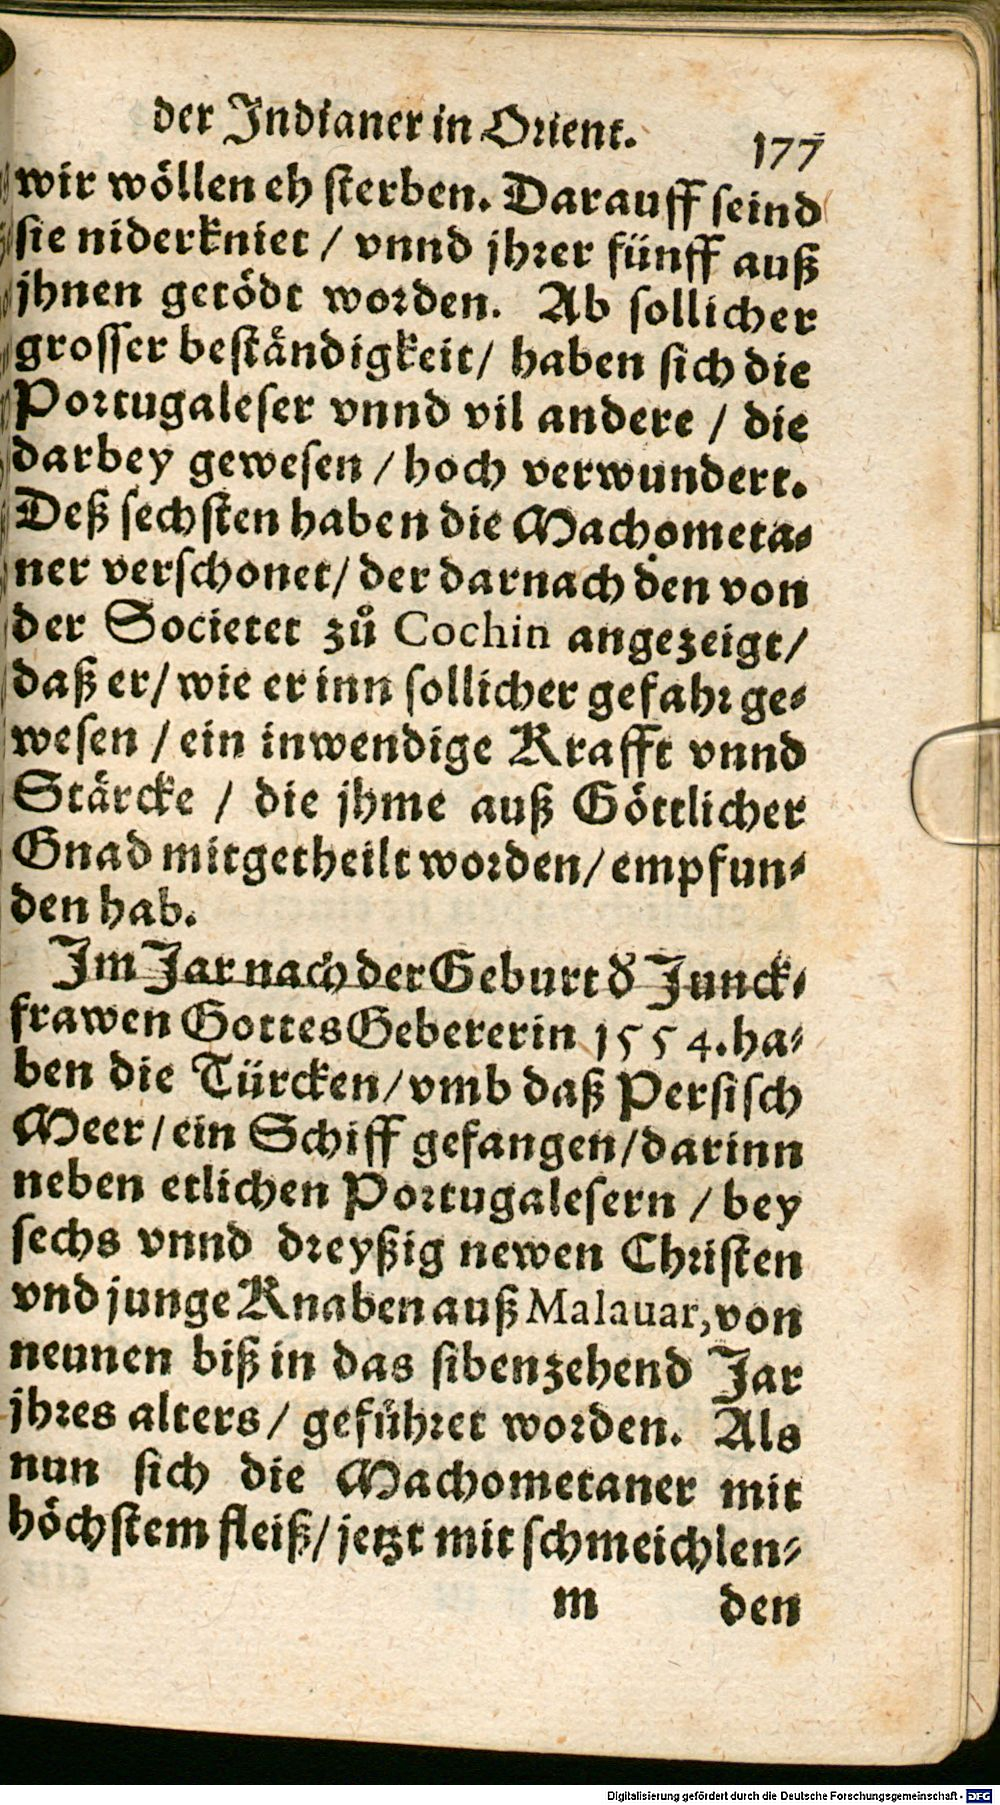 der Indianer in Orient. 177
wir wöllen eh sterben. Darauff seind
sie niderkniet / vnnd jhrer fünff auß
jhnen getödt worden. Ab sollicher
grosser beständigkeit/ haben sich die
Portugaleser vnnd vil andere / die
darbey gewesen / hoch verwundert.
Deß sechsten haben die Machometa-
ner verschonet/ der darnach den von
der Societet zů Cochin angezeigt/
daß er/ wie er inn sollicher gefahr ge-
wesen / ein inwendige Krafft vnnd
Stärcke / die jhme auß Göttlicher
Gnad mitgetheilt worden/ empfun-
den hab.
Im Jar nach der Geburt d' Junck-
frawen Gottes Gebererin 1554. ha-
ben die Türcken/ vmb daß Persisch
Meer/ ein Schiff gefangen/ darinn
neben etlichen Portugalesern / bey
sechs vnnd dreyßig newen Christen
vnd junge Knaben auß Malauar, von
neunen biß in das sibenzehend Jar
jhres alters/ geführet worden. Als
nun sich die Machometaner mit
höchstem fleiß/ jetzt mit schmeichlen-
m den
Digitalisierung gefördert durch die Deutsche Forschungsgemeinschaft - DFG